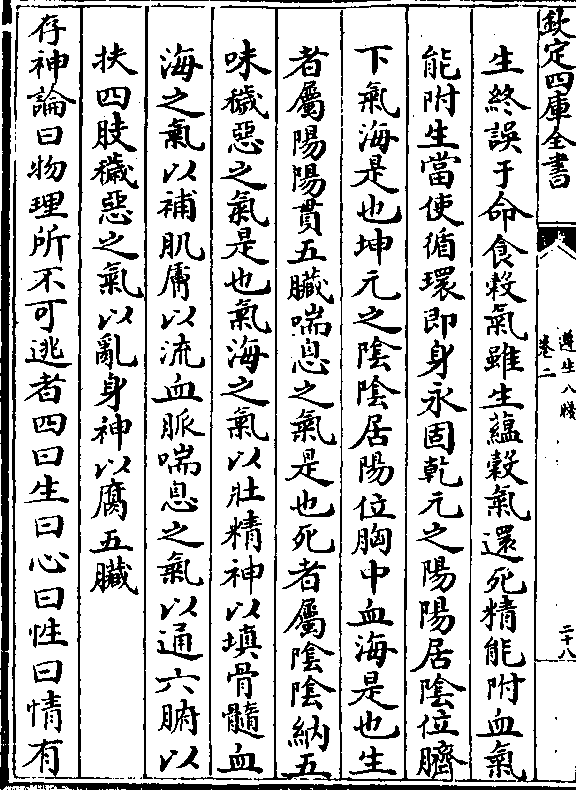 欽定四庫全書
遵生八牋
卷二
二十八
生終誤于命食穀氣雖生蘊穀氣還死精能附血氣
能附生當使循環即身永固乾元之陽陽居陰位臍
下氣海是也坤元之陰陰居陽位胸中血海是也生
者屬陽陽貫五臟喘息之氣是也死者屬陰陰納五
味穢惡之氣是也氣海之氣以壯精神以填骨髓血
海之氣以補肌膚以流血脈喘息之氣以通六腑以
扶四肢穢惡之氣以亂身神以腐五臟
存神論曰物理所不可逃者四曰生曰心曰性曰情有